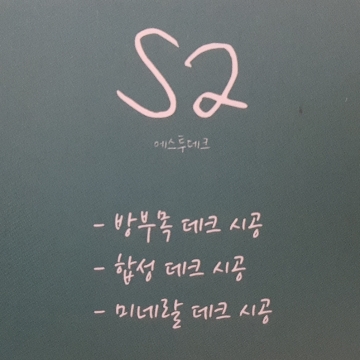 S2
에스투데크
- 방부목 데크 시공
- 합성 데크 시공
- 미네랄 데크 시공